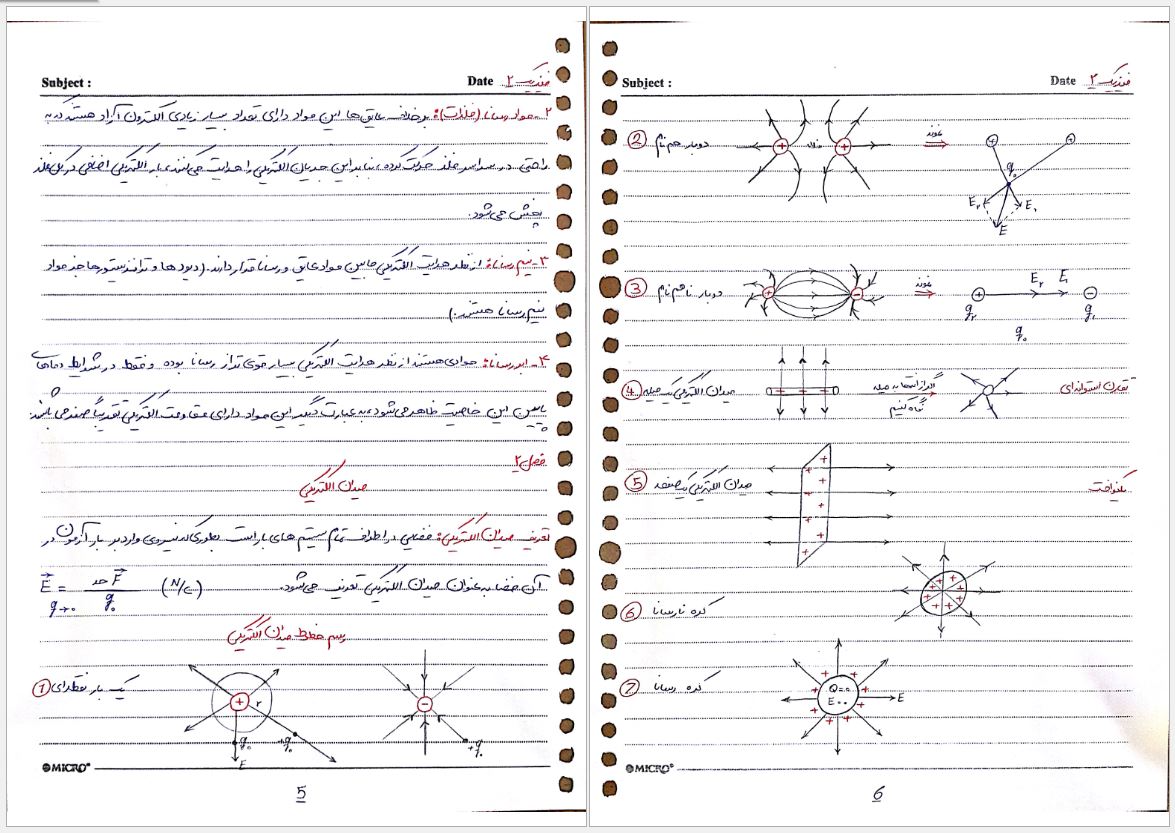 Subject :
Date فیزیک ۲
۲- مواد رسانا (فلزات): برخلاف عایق ها این مواد دارای تعداد بسیار زیادی الکترون آزاد هستند که به
راحتی در سراسر فلز حرکت کرده، بنابراین جریان الکتریکی را هدایت می کنند، بار الکتریکی اضافی در کل فلز
پخش می شود.
۳- نیم رسانا: از نظر هدایت الکتریکی مابین مواد عایق و رسانا قرار دارند. (دیودها و ترانزیستورها جزء مواد
نیم رسانا هستند.)
۴- ابررسانا: موادی هستند از نظر هدایت الکتریکی بسیار قوی تر از رسانا بوده و فقط در شرایط دماهای
پایین این خاصیت ظاهر می شود، به عبارت دیگر این مواد دارای مقاومت الکتریکی تقریباً صفر می باشند.
فصل ۲
میدان الکتریکی
تعریف میدان الکتریکی: فضایی در اطراف تمام سیستم های بار است بطوری که نیروی وارد بر بار آزمون در
آن فضا به عنوان میدان الکتریکی تعریف می شود. (N/C) E = حد F / q₀
q→۰
رسم خطوط میدان الکتریکی
① یک بار نقطه ای
+ r q₀ +q₀ E
- +q₀
MICRO
5
Subject :
Date فیزیک ۲
② دو بار هم نام + + نمونه ⇒ + + q₀ E₂ E₁ E
③ دو بار ناهم نام + - نمونه ⇒ + E₂ E₁ -
q₂ q₁
q₀
④ میدان الکتریکی یک میله + + + اگر از انتها به میله نگاه کنیم تقارن استوانه ای
⑤ میدان الکتریکی یک صفحه + + + + + + یکنواخت
⑥ کره نارسانا + + + + + + +
⑦ کره رسانا Q=۰ E=۰ E
MICRO
6